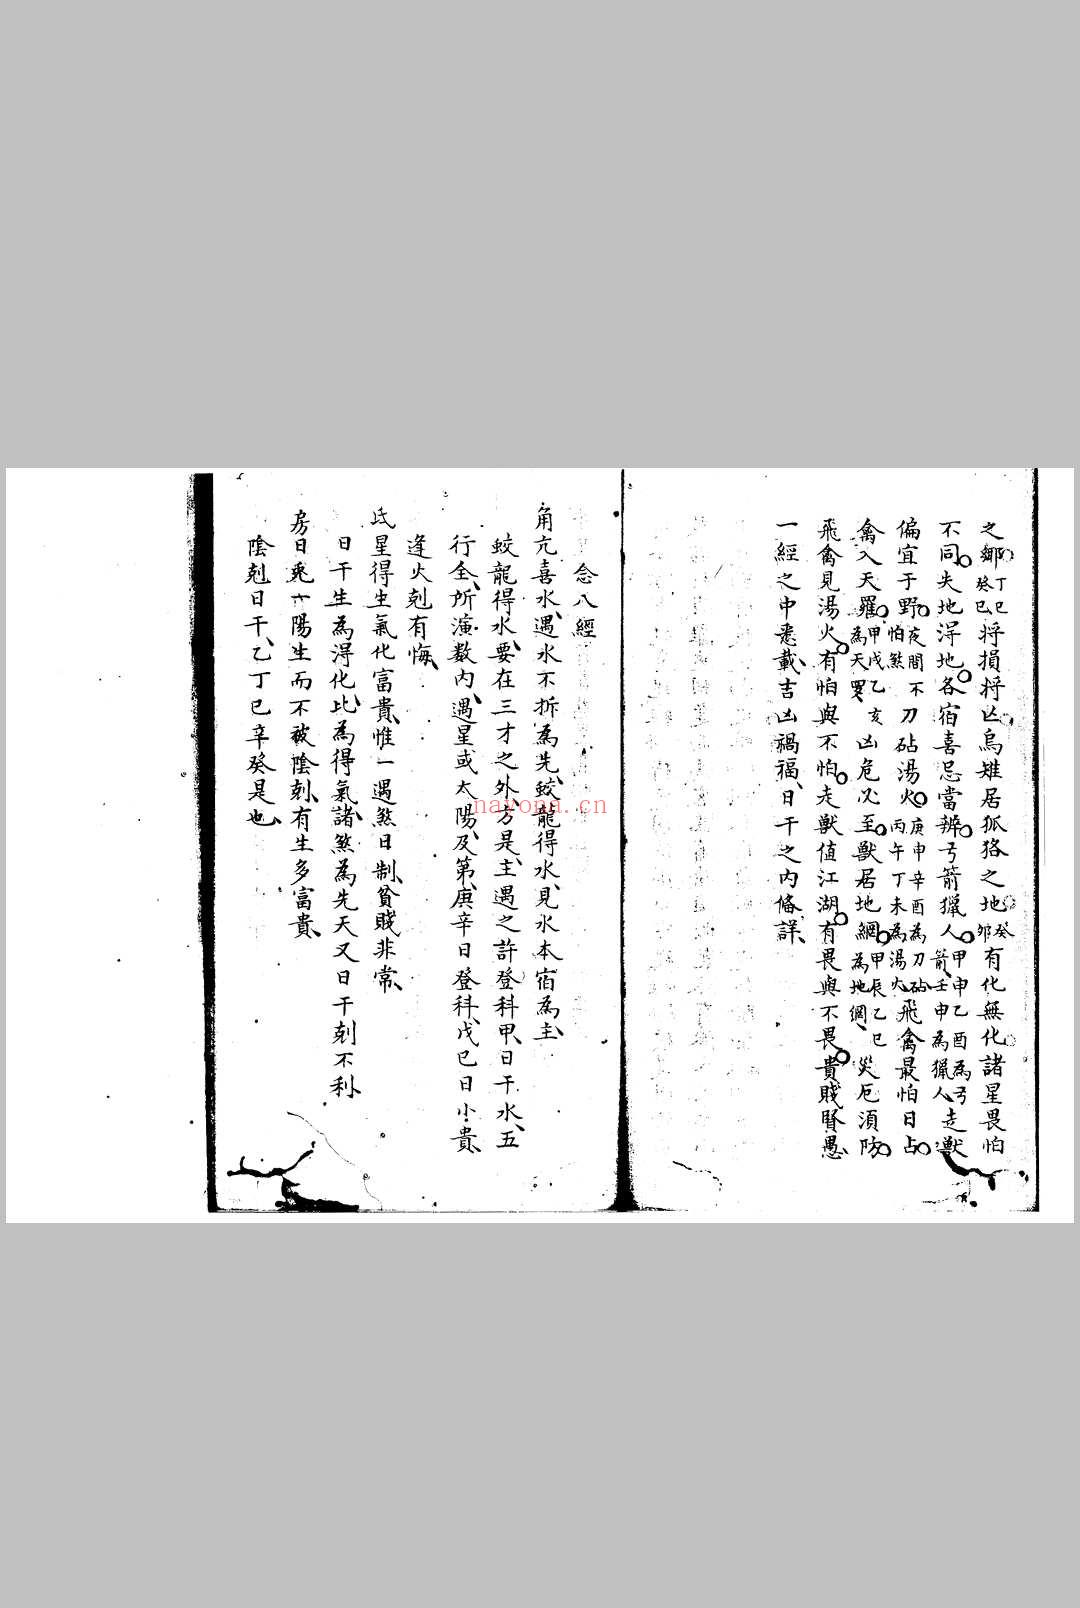 之鄉丁巳癸巳將損將凶烏雉居狐狢之地癸卯有化無化諸星畏怕
不同失地淂地各宿喜忌當辨弓箭獵人甲申乙酉為弓箭壬申為獵人走獸
偏宜于野夜間不怕煞刀砧湯火庚申辛酉為刀砧丙午丁未為湯火飛禽最怕日占
禽入天羅甲戌乙亥為天罗凶危必至獸居地網甲辰乙巳為地網災厄須防
飛禽見湯火有怕與不怕走獸值江湖有畏與不畏貴賤賢愚
一經之中悉載吉凶禍福日干之內條詳
念八經
角亢喜水遇水不拆為先蛟龍得水見水本宿為主
蛟龍得水要在三才之外方是主遇之許登科甲日干水五
行全所演数內遇星或太陽及第庚辛日登科戊巳日小貴
逢火剋有悔
氐星得生氣化富貴惟一遇煞日制貧賤非常
日干生為淂化比為得氣諸煞為先天又日干剋不利
房日兎六陽生而不被陰剋有生多富貴
陰剋日干乙丁巳辛癸是也
nayona.cn